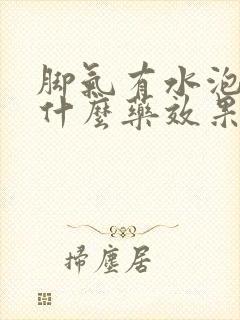 脚氣有水泡
什麼藥效果
掃塵居